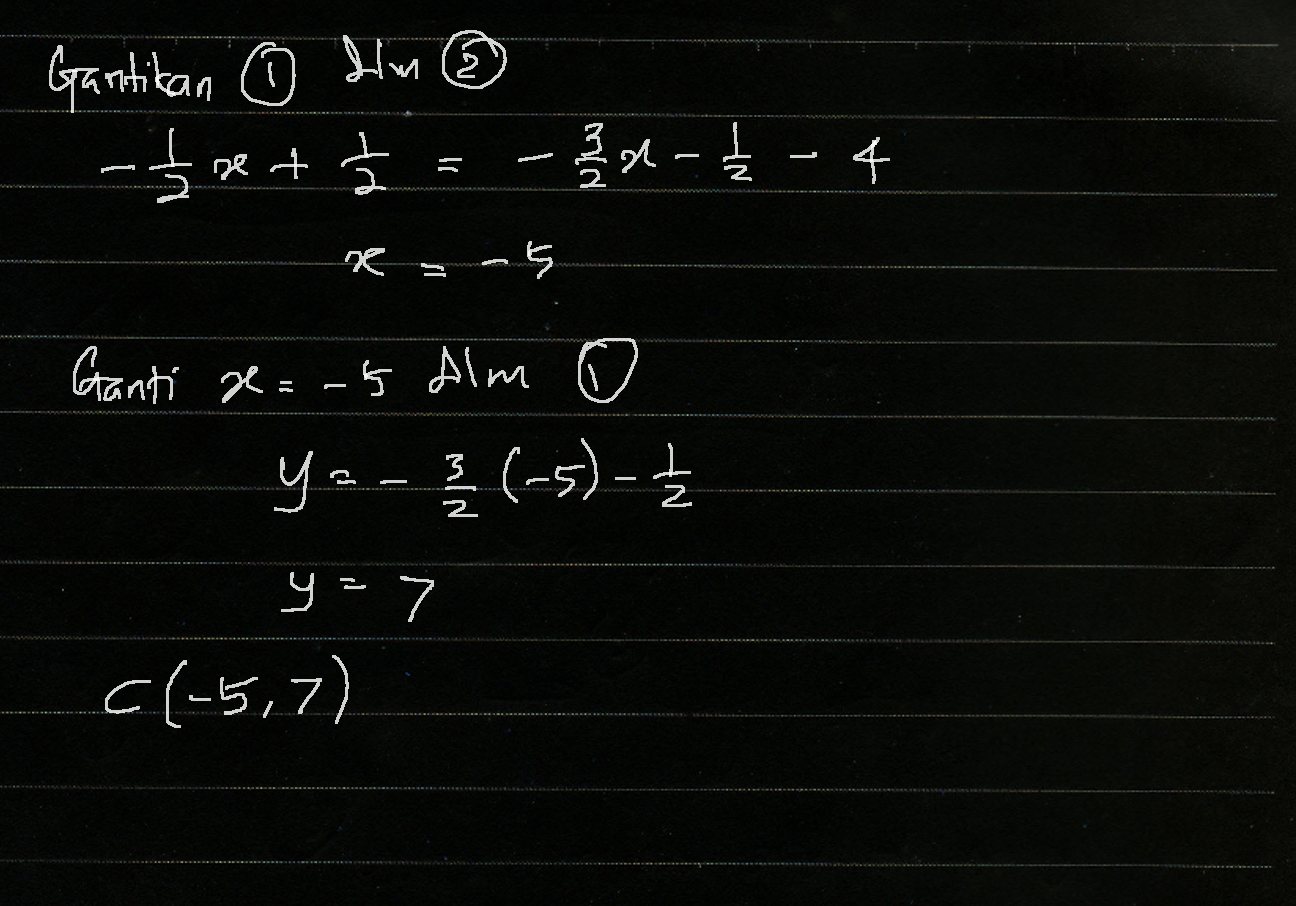 Gantikan ① dlm ②
-1/2 x + 1/2 = -3/2 x - 1/2 - 4
x = -5
Ganti x = -5 dlm ①
y = - 3/2 (-5) - 1/2
y = 7
C(-5, 7)